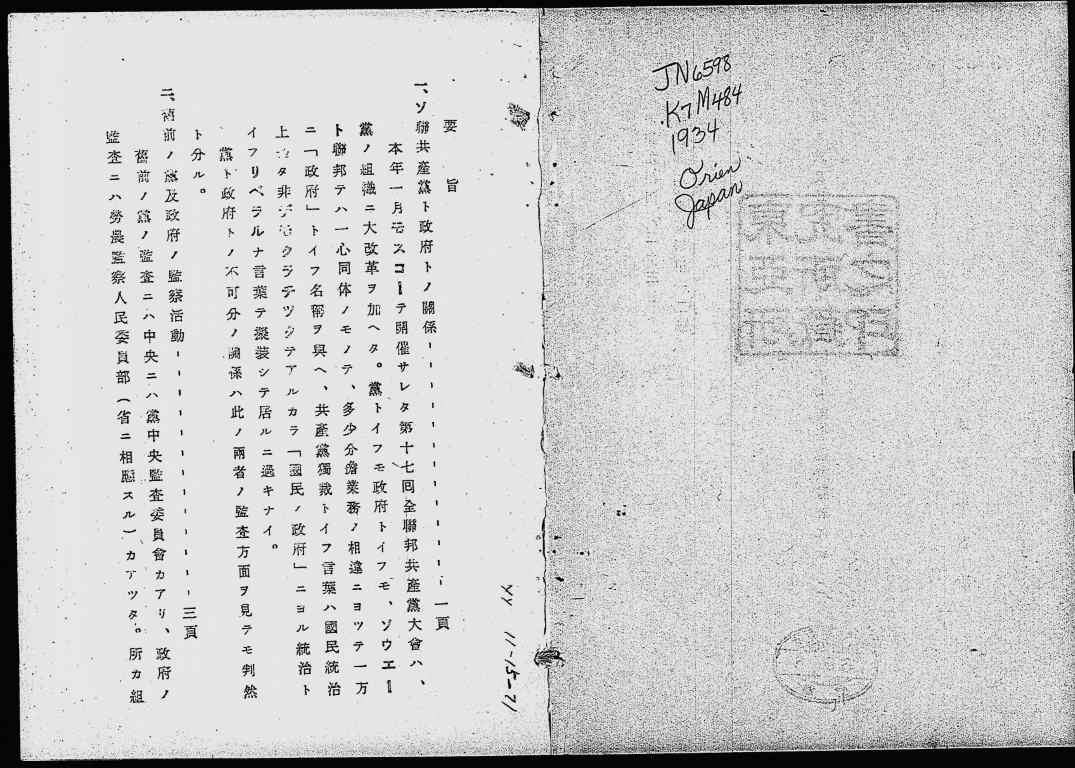 JN6598
.K7M484
1934
Orien
Japan
要 旨
一、ソ聯共産黨ト政府トノ關係 一頁
本年一月モスコーテ開催サレタ第十七回全聯邦共産黨大會ハ、
黨ノ組織ニ大改革ヲ加ヘタ。黨トイフモ政府トイフモ、ソウエー
ト聯邦テハ一心同体ノモノテ、多少分擔業務ノ相違ニヨツテ一方
ニ「政府」トイフ名稱ヲ與ヘ、共産黨獨裁トイフ言葉ハ國民統治
上 非デモクラテツクテアルカラ「國民ノ政府」ニヨル統治ト
イフリベラルナ言葉テ擬裝シテ居ルニ過キナイ。
黨ト政府トノ不可分ノ關係ハ此ノ兩者ノ監査方面ヲ見テモ判然
ト分ル。
二、舊前ノ黨及政府ノ監察活動 三頁
舊前ノ黨ノ監査ニハ中央ニハ黨中央監査委員會カアリ、政府ノ
監査ニハ勞農監察人民委員部（省ニ相應スル）カアツタ。所カ組
YY 11-15-71